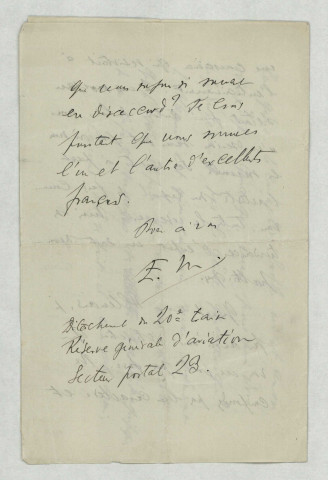 que nous ayons si souvent
en désaccord? Je crois
pourtant que nous sommes
l'un et l'autre d'excellents
français.
Bien à vous
E. M.
Détachement du 20e Train
Réserve générale d'aviation
Secteur postal 23.